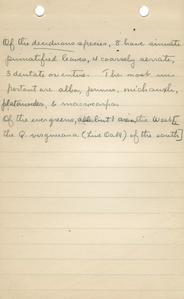 Of the deciduous species, 8 have sinuate
pinnatified leaves, 4 coarsely serrate,
3 dentate or entire. The most im-
portant are alba, prinus, michauxii,
platanoides, & macrocarpa.
Of the evergreens, all but 1 are in the West [&
the Q. virginiana (Live Oak) of the south]